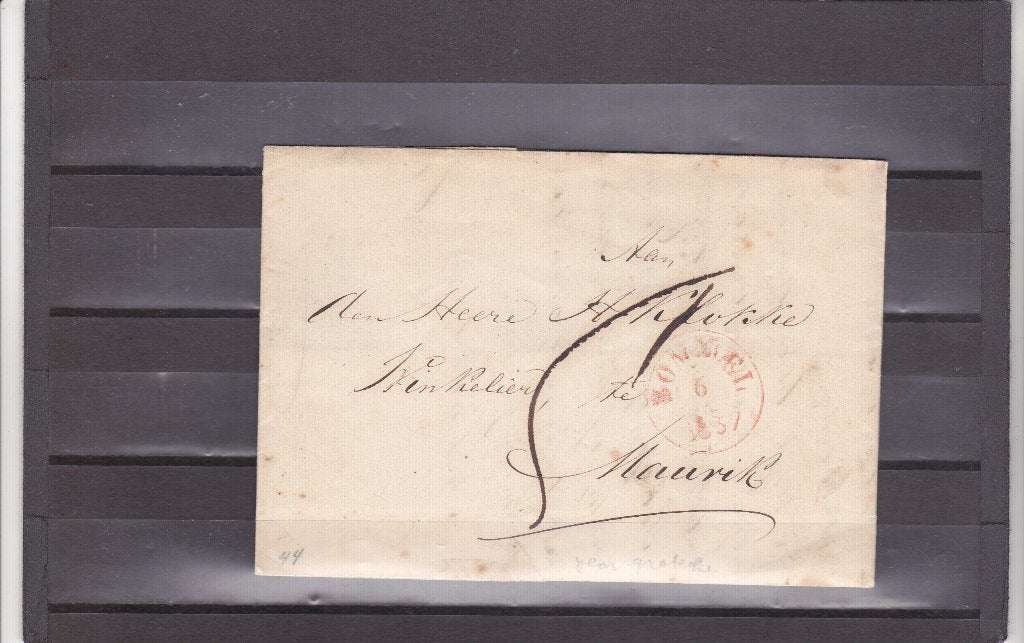 Aan
den Heere H Klokke
Winkelier, te
Maurik
BOMMEL
6
1857
44